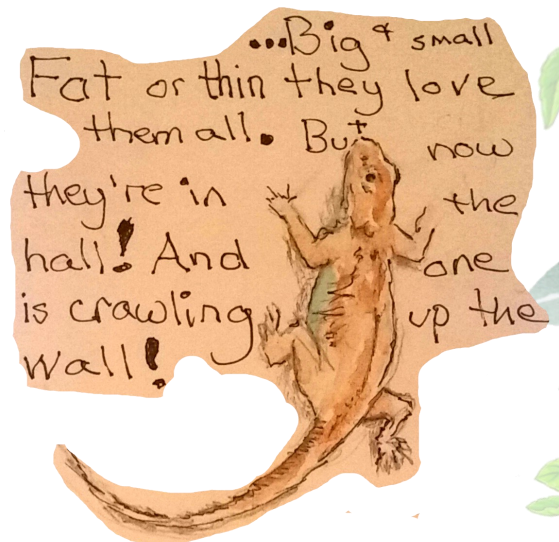 ...Big & small
Fat or thin they love
them all. But now
they're in the
hall! And one
is crawling up the
wall!